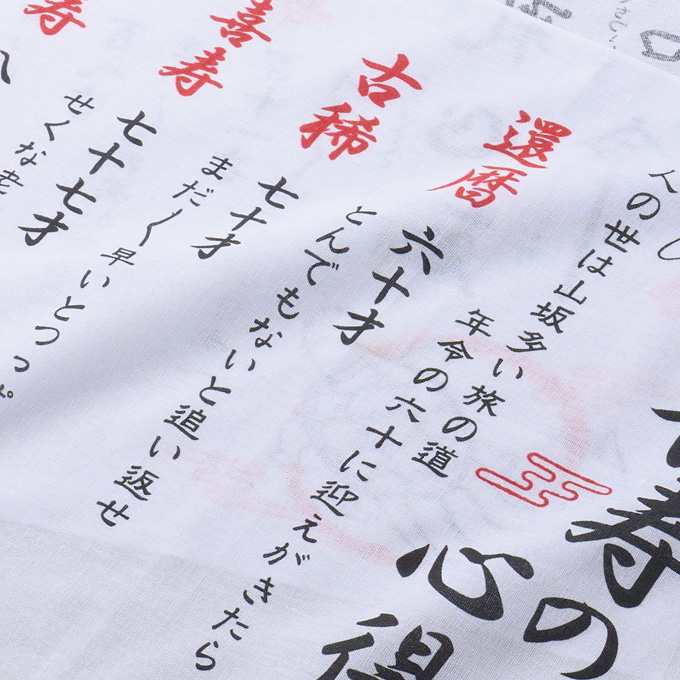 寿の
心得
人の世は山坂多い旅の道
年令の六十に迎えがきたら
還暦
六十才
とんでもないと追い返せ
古稀
七十才
まだ〱早いとつっぱ
喜寿
七十七才
せくな老
寿